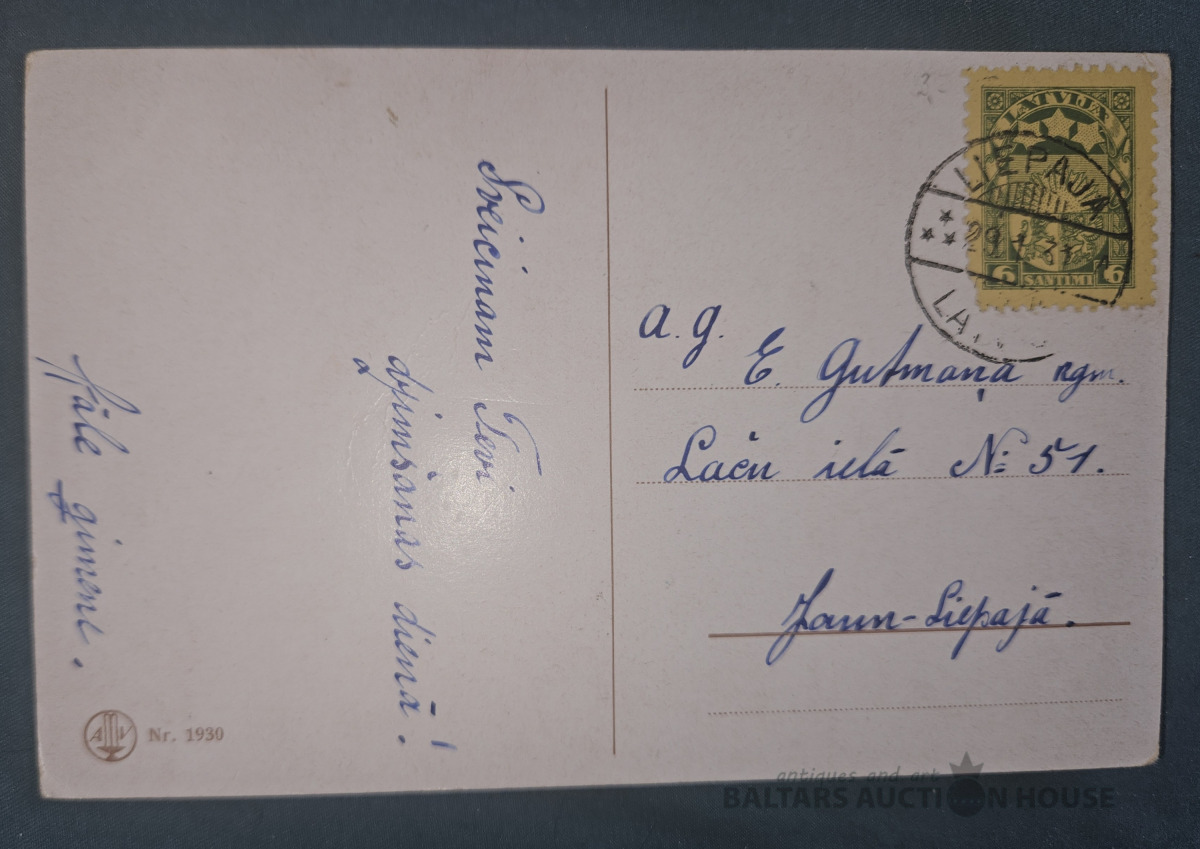 Sveicinam Tevi
dzimšanas dienā!
ģimene.
AV
Nr. 1930
LATVIJA
6 SANTIMI 6
LIEPAJA
29 1 31
a. g.
E. Gutmaņa kgm.
Lāču ielā № 51.
Jaun-Liepajā.
antiques and art
BALTARS AUCTION HOUSE